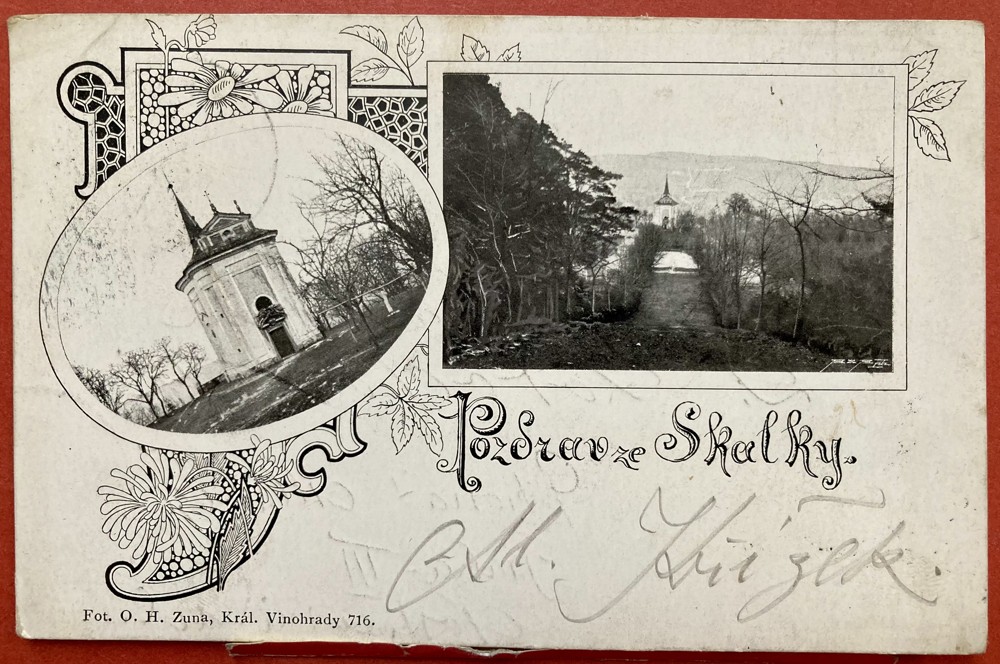 Pozdrav ze Skalky.
Křížek.
Fot. O. H. Zuna, Král. Vinohrady 716.